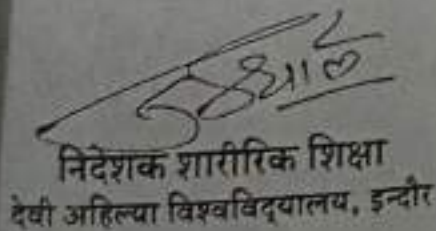 निदेशक शारीरिक शिक्षा
देवी अहिल्या विश्वविद्यालय, इन्दौर